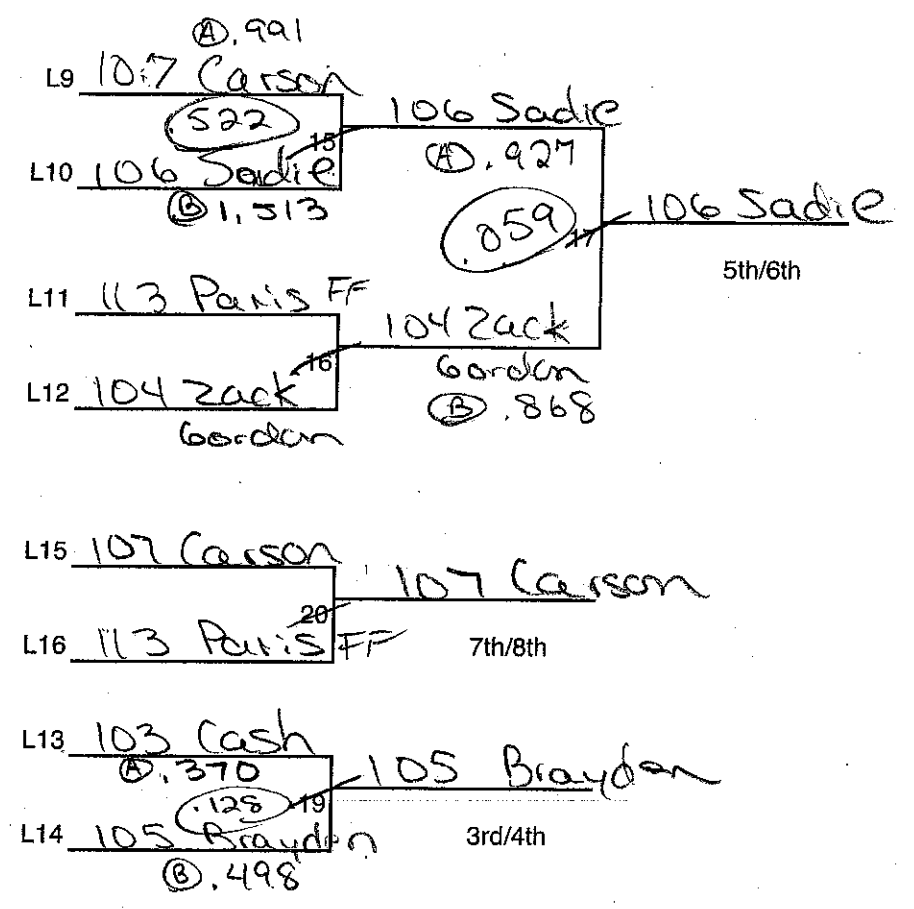 Ⓐ .991
L9 107 Carson
.522
15
L10 106 Sadie
Ⓑ 1.513
106 Sadie
Ⓐ .927
.059
17
106 Sadie
5th/6th
L11 113 Paris FF
16
L12 104 Zack
Gordon
104 Zack
Gordon
Ⓑ .868
L15 107 Carson
20
L16 113 Paris FF
107 Carson
7th/8th
L13 103 Cash
Ⓐ .370
.128
19
L14 105 Brayden
Ⓑ .498
105 Brayden
3rd/4th